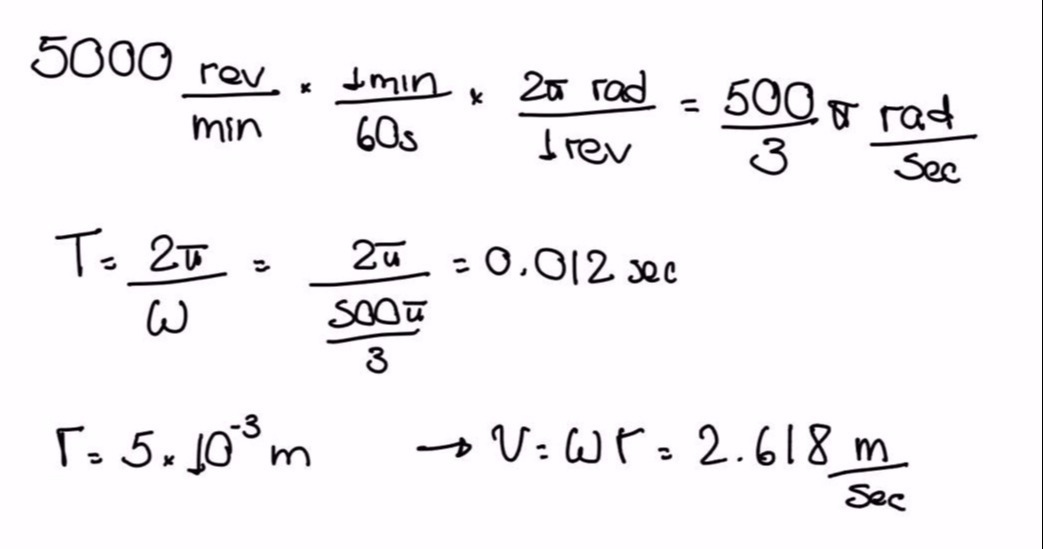 5000 rev/min × 1min/60s × 2π rad/1rev = 500/3 π rad/sec
T = 2π/ω = 2π/(500π/3) = 0.012 sec
r = 5 × 10⁻³ m → v = ωr = 2.618 m/sec